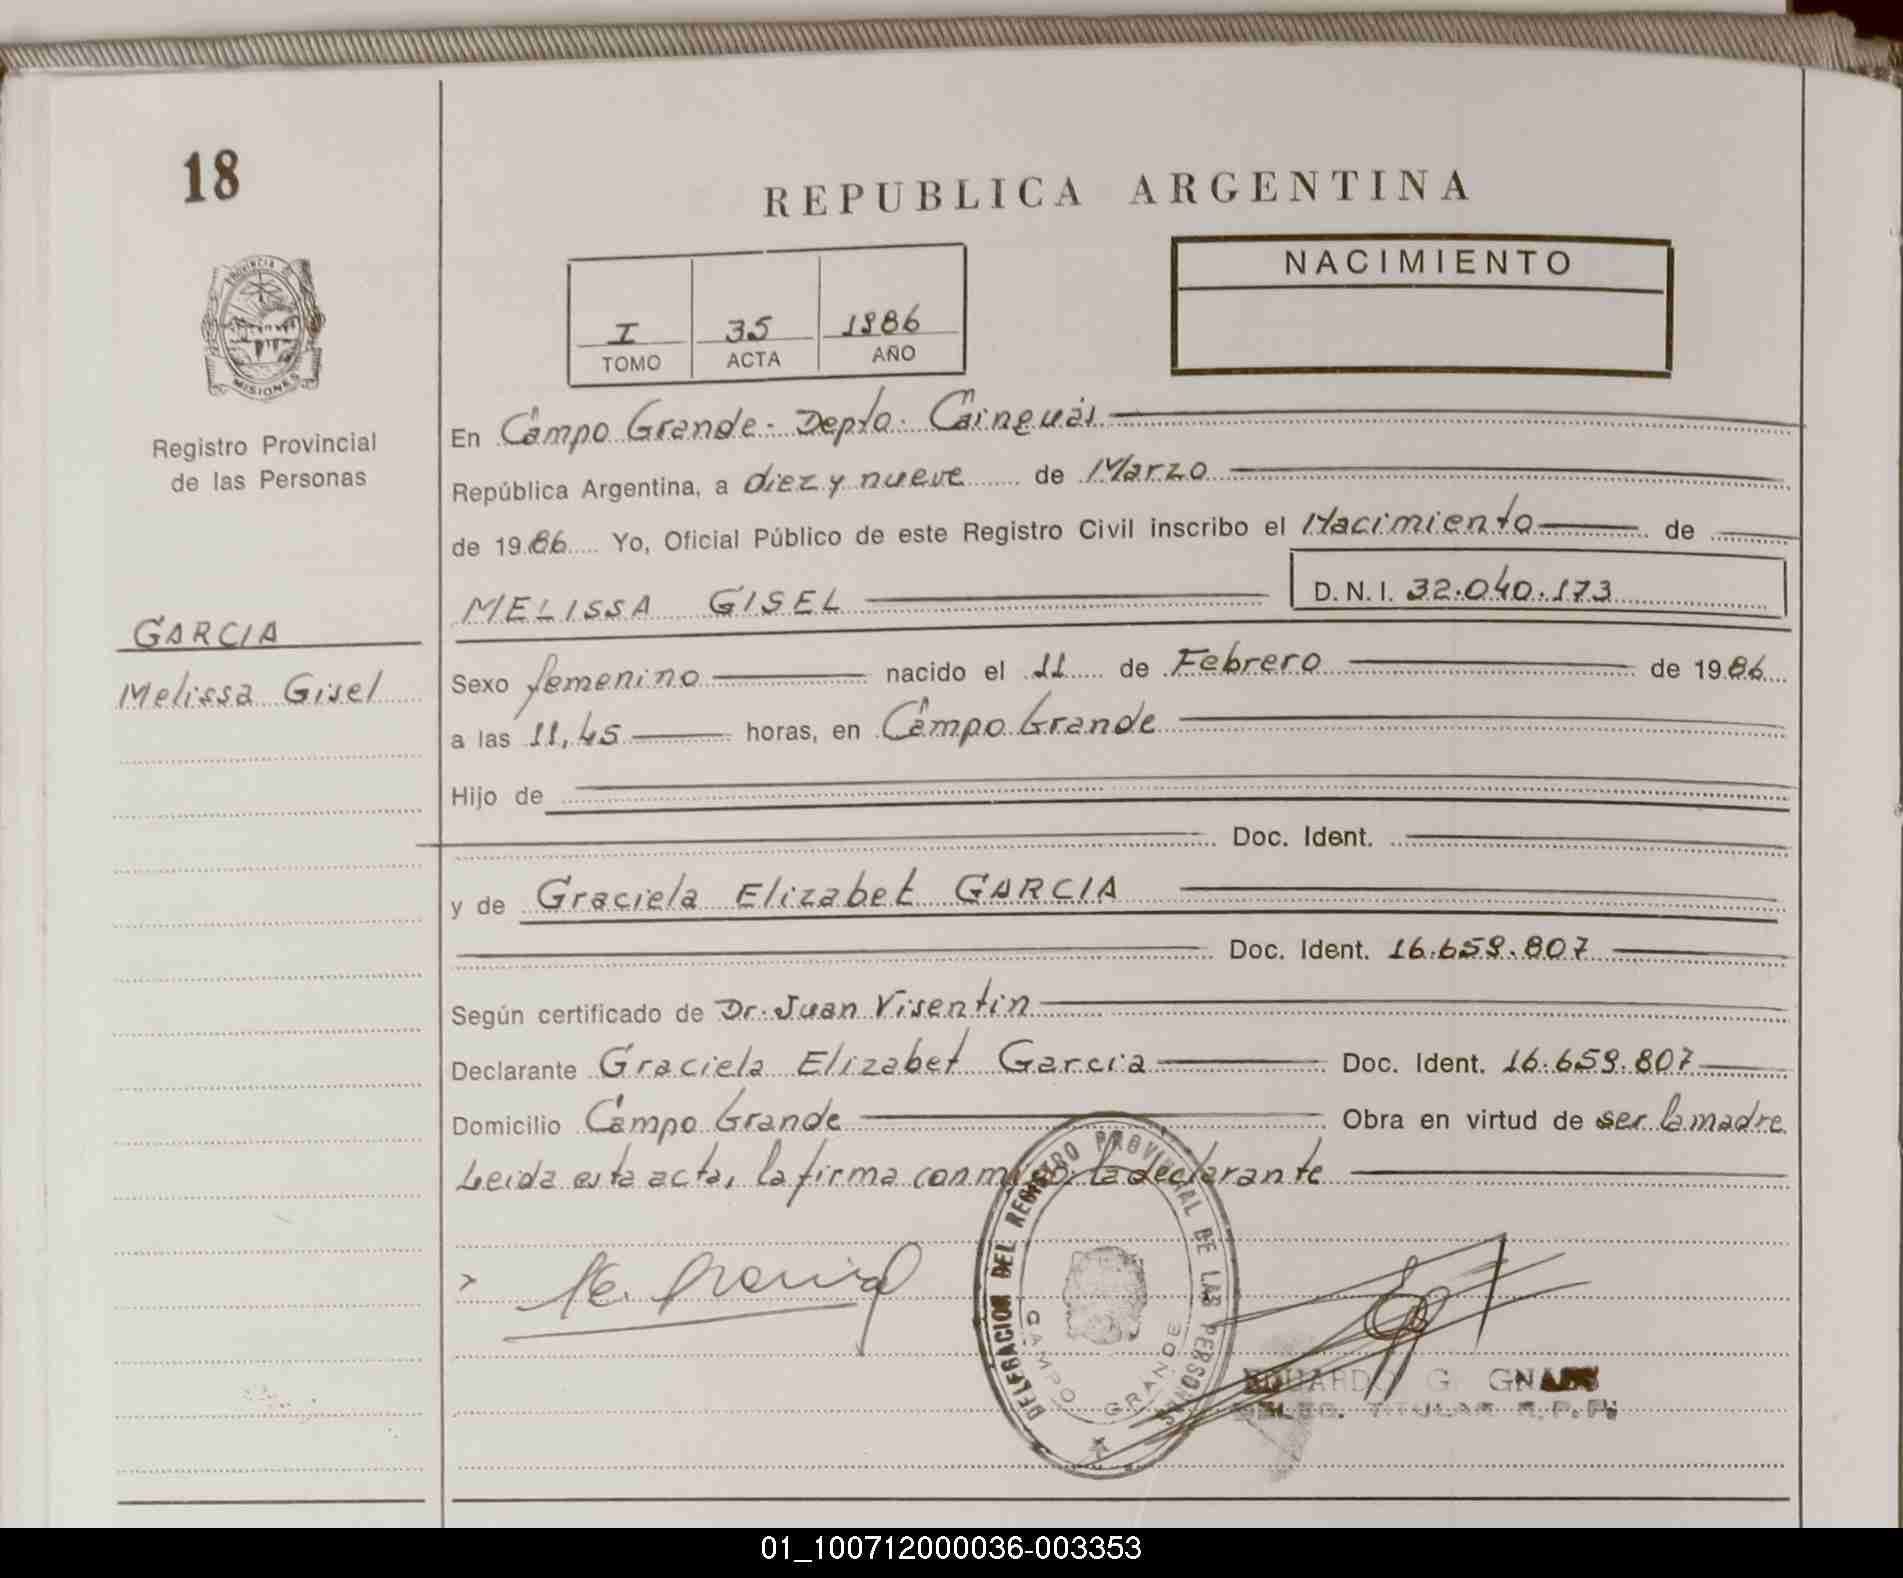 18
REPUBLICA ARGENTINA
PROVINCIA DE
MISIONES
NACIMIENTO
I 35 1986
TOMO ACTA AÑO
Registro Provincial
de las Personas
GARCIA
Melissa Gisel
En Campo Grande - Depto. Cainguás
República Argentina, a diez y nueve de Marzo
de 1986 Yo, Oficial Público de este Registro Civil inscribo el Nacimiento de
MELISSA GISEL D.N.I. 32.040.173
Sexo femenino nacido el 11 de Febrero de 1986
a las 11,45 horas, en Campo Grande
Hijo de
Doc. Ident.
y de Graciela Elizabet GARCIA
Doc. Ident. 16.659.807
Según certificado de Dr. Juan Visentin
Declarante Graciela Elizabet Garcia Doc. Ident. 16.659.807
Domicilio Campo Grande Obra en virtud de ser la madre
Leida esta acta, la firma conmigo: la declarante
DELEGACION DEL REGISTRO PROVINCIAL DE LAS PERSONAS
CAMPO GRANDE
EDUARDO G. GNASS
DELEG. TITULAR R.P.P.
01_100712000036-003353